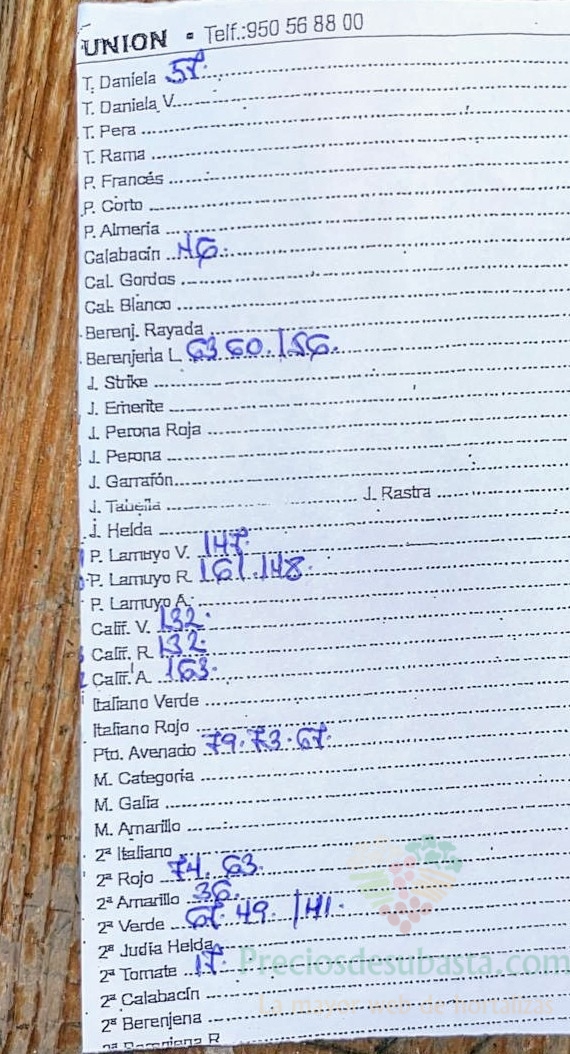 UNION - Telf.:950 56 88 00
T. Daniela 57.
T. Daniela V.
T. Pera
T. Rama
P. Francés
P. Corto
P. Almería
Calabacín 46.
Cal. Gordos
Cal. Blanco
Berenj. Rayada
Berenjena L. 63 60. 156.
J. Strike
J. Emerite
J. Perona Roja
J. Perona
J. Garrafón
J. Tabella J. Rastra
J. Helda
P. Lamuyo V. 147.
P. Lamuyo R. 161. 148.
P. Lamuyo A.
Calif. V. 132.
Calif. R. 132.
Calif. A. 163.
Italiano Verde
Italiano Rojo
Pto. Avenado 79. 73. 67.
M. Categoría
M. Galia
M. Amarillo
2ª Italiano
2ª Rojo 74. 63.
2ª Amarillo 36.
2ª Verde 67. 49. 141.
2ª Judía Helda
2ª Tomate 17.
2ª Calabacín
2ª Berenjena
2ª Berenjena R
Preciosdesubasta.com
La mayor web de hortalizas